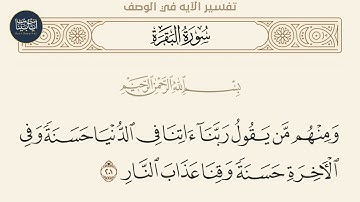 تفسير الآيه في الوصف
سُورَةُ البَقَرَةِ
بِسْمِ ٱللَّهِ ٱلرَّحْمَٰنِ ٱلرَّحِيمِ
وَمِنْهُم مَّن يَقُولُ رَبَّنَآ ءَاتِنَا فِى ٱلدُّنْيَا حَسَنَةً وَفِى
ٱلْأَخِرَةِ حَسَنَةً وَقِنَا عَذَابَ ٱلنَّارِ ٢٠١